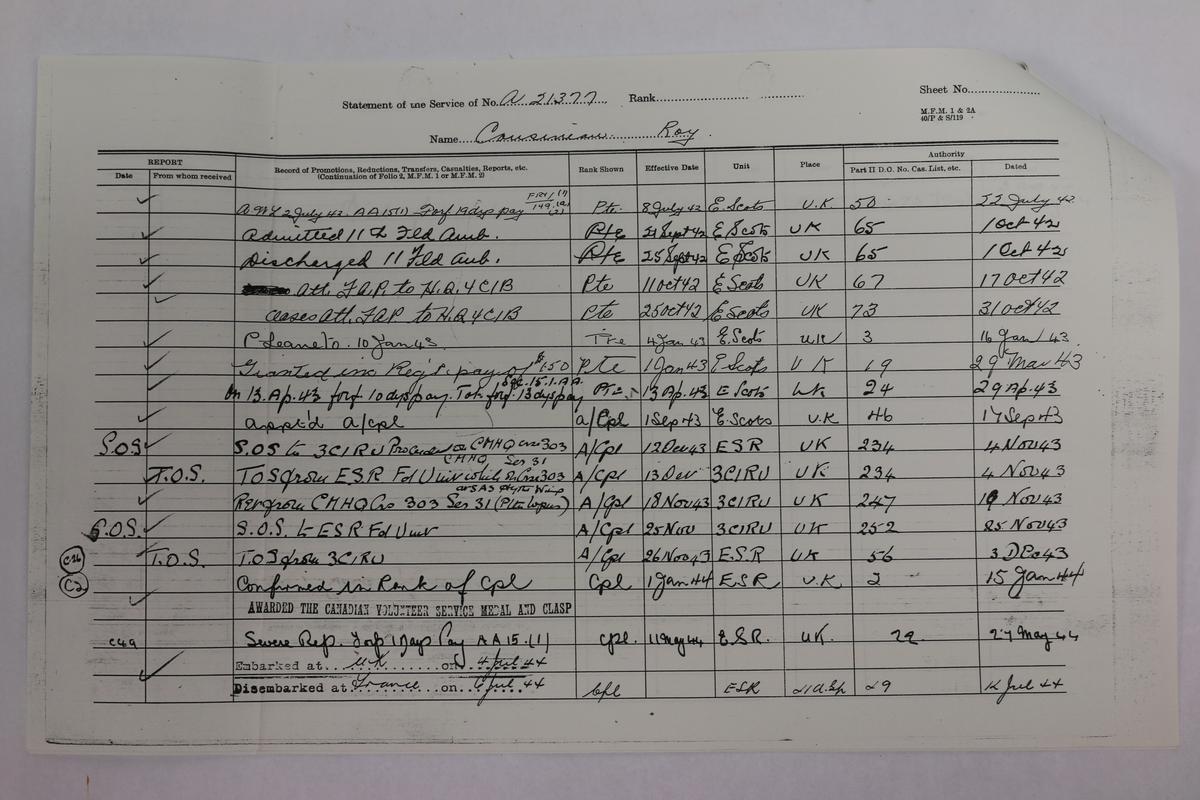 Statement of the Service of No. A 21377 Rank
Sheet No.
M.F.M. 1 & 2A
40/P & S/119
Name Cousineau Roy
REPORT
Date From whom received
Record of Promotions, Reductions, Transfers, Casualties, Reports, etc.
(Continuation of Folio 2, M.F.M. 1 or M.F.M. 2)
Rank Shown Effective Date Unit Place
Authority
Part II D.O. No. Cas. List, etc. Dated
AWL 2 July 42 AA15(1) Forf 19 dys pay Pte 8 July 42 E. Scots U.K 50 22 July 42
Admitted 11th Fld Amb. Pte 21 Sept 42 E Scots UK 65 1 Oct 42
Discharged 11 Fld Amb. Pte 25 Sept 42 E Scots UK 65 1 Oct 42
Att. F.A.P. to H.Q. 4 CIB Pte 11 Oct 42 E Scots UK 67 17 Oct 42
Ceases Att. F.A.P. to H.Q 4 CIB Pte 25 Oct 42 E Scots UK 73 31 Oct 42
10 Jan 43 4 Jan 43 E. Scots UK 3 16 Jan 43
Granted inc Regt. pay of $1.50 Pte 1 Jan 43 E Scots U K 19 29 Mar 43
On 13. Ap. 43 forf 10 dys pay. Tot. forf. 13 dys pay Pte 13 Ap. 43 E Scots UK 24 29 Ap. 43
Appt'd A/Cpl A/Cpl 1 Sep 43 E. Scots U.K 46 17 Sep 43
S.O.S S.O.S to 3CIRU CMHQ Crse 303 A/Cpl 12 Nov 43 ESR UK 234 4 Nov 43
CMHQ Ser 31
T.O.S. TOS from E.S.R Fd Unit while on Crse 303 A/Cpl 13 3CIRU UK 234 4 Nov 43
Ret from CMHQ Crs 303 Ser 31 A/Cpl 18 Nov 43 3CIRU UK 247 19 Nov 43
S.O.S. S.O.S. to ESR Fd Unit A/Cpl 25 Nov 3CIRU UK 252 25 Nov 43
T.O.S. TOS from 3CIRU A/Cpl 26 Nov 43 E.S.R UK 56 3 Dec 43
C2 Confirmed in Rank of Cpl Cpl 1 Jan 44 ESR U.K. 2 15 Jan 44
AWARDED THE CANADIAN VOLUNTEER SERVICE MEDAL AND CLASP
Severe Rep. Forf 1 Days Pay AA 15.(1) Cpl. 11 May 44 E.S.R. UK. 22 27 May 44
Embarked at UK on 4 Jul 44
Disembarked at France on 6 Jul 44 Cpl ESR 29 14 Jul 44